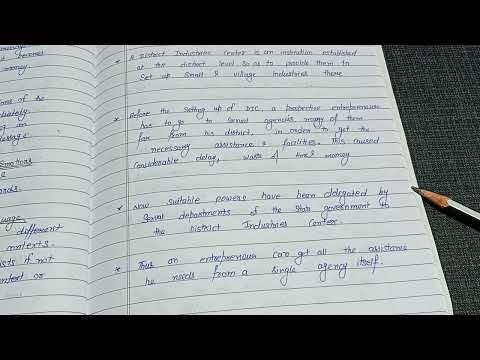 money.
* A District Industries Center is an instituition established
at the district level so as to provide them to
Set up Small & village Industries there
* Before the setting up of DIC, a prospective entrepreneur
has to go to several agencies many of them
far from his district, in order to get the
necessary assistance & facilities. This caused
Considerable delay, waste of time & money
* Now Suitable powers have been delegated by
Several departments of the State government to
the District Industries Center
* Thus an entrepreneur can get all the assistance
he needs from a single agency itself.
different
contexts.
if not
context or